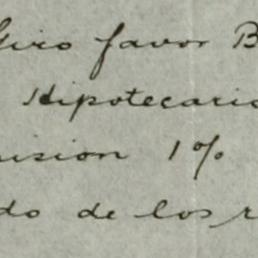 Giro favor B
Hipotecario
uision 1%
do de los r